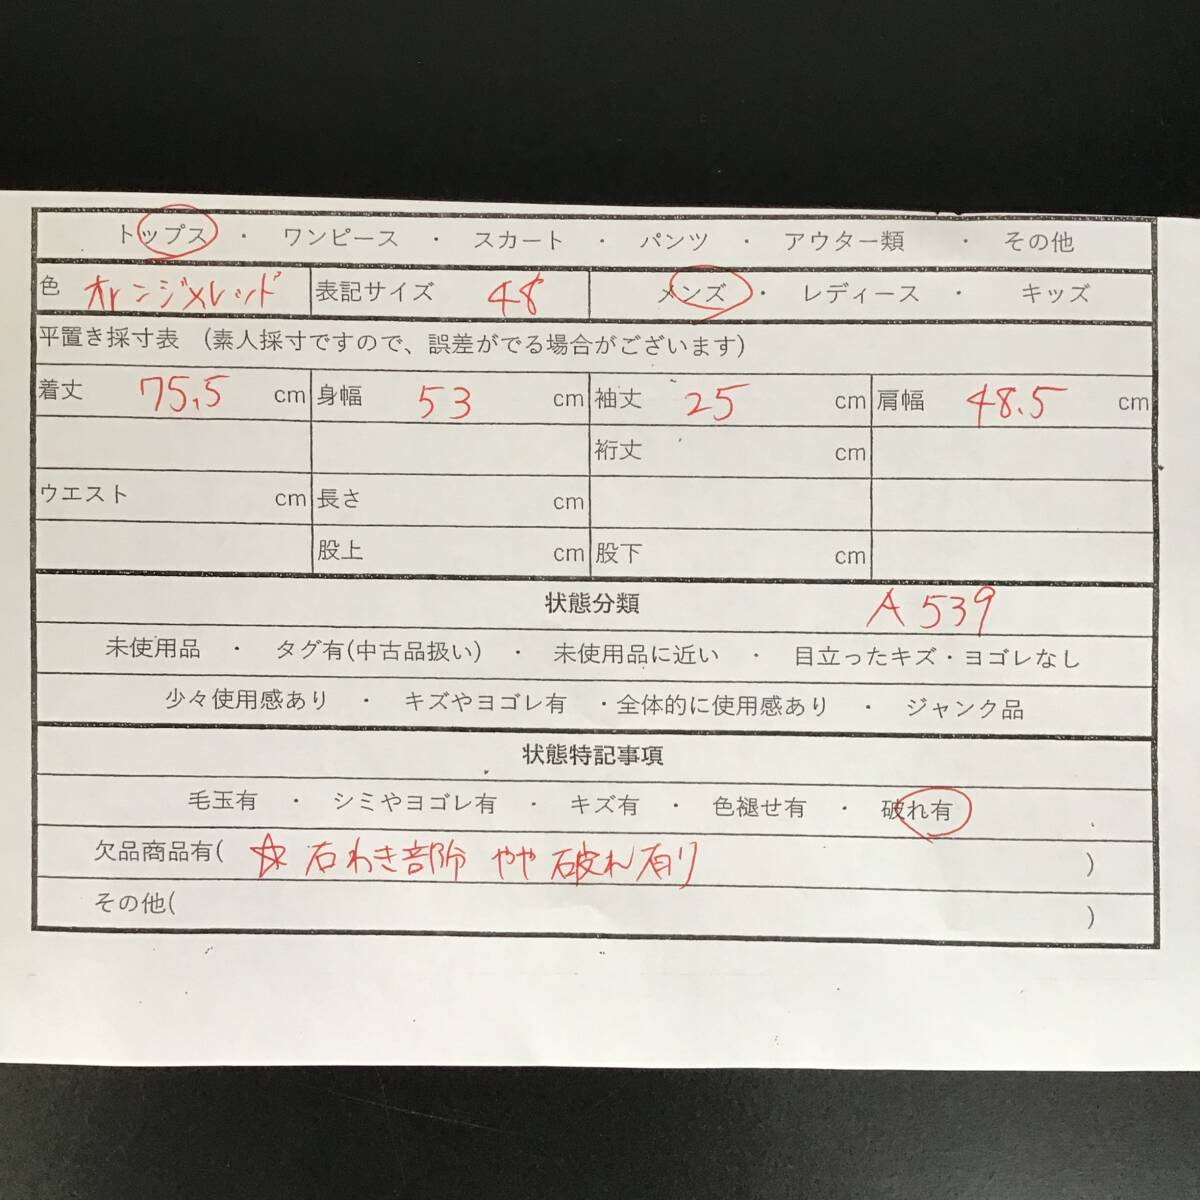 トップス ・ ワンピース ・ スカート ・ パンツ ・ アウター類 ・ その他
色 オレンジ×レッド 表記サイズ 48 メンズ ・ レディース ・ キッズ
平置き採寸表 (素人採寸ですので、誤差がでる場合がございます)
着丈 75.5 cm 身幅 53 cm 袖丈 25 cm 肩幅 48.5 cm
裄丈 cm
ウエスト cm 長さ cm
股上 cm 股下 cm
状態分類 A539
未使用品 ・ タグ有(中古品扱い) ・ 未使用品に近い ・ 目立ったキズ・ヨゴレなし
少々使用感あり ・ キズやヨゴレ有 ・全体的に使用感あり ・ ジャンク品
状態特記事項
毛玉有 ・ シミやヨゴレ有 ・ キズ有 ・ 色褪せ有 ・ 破れ有
欠品商品有( ☆右わき部分 やや破れ有り )
その他( )